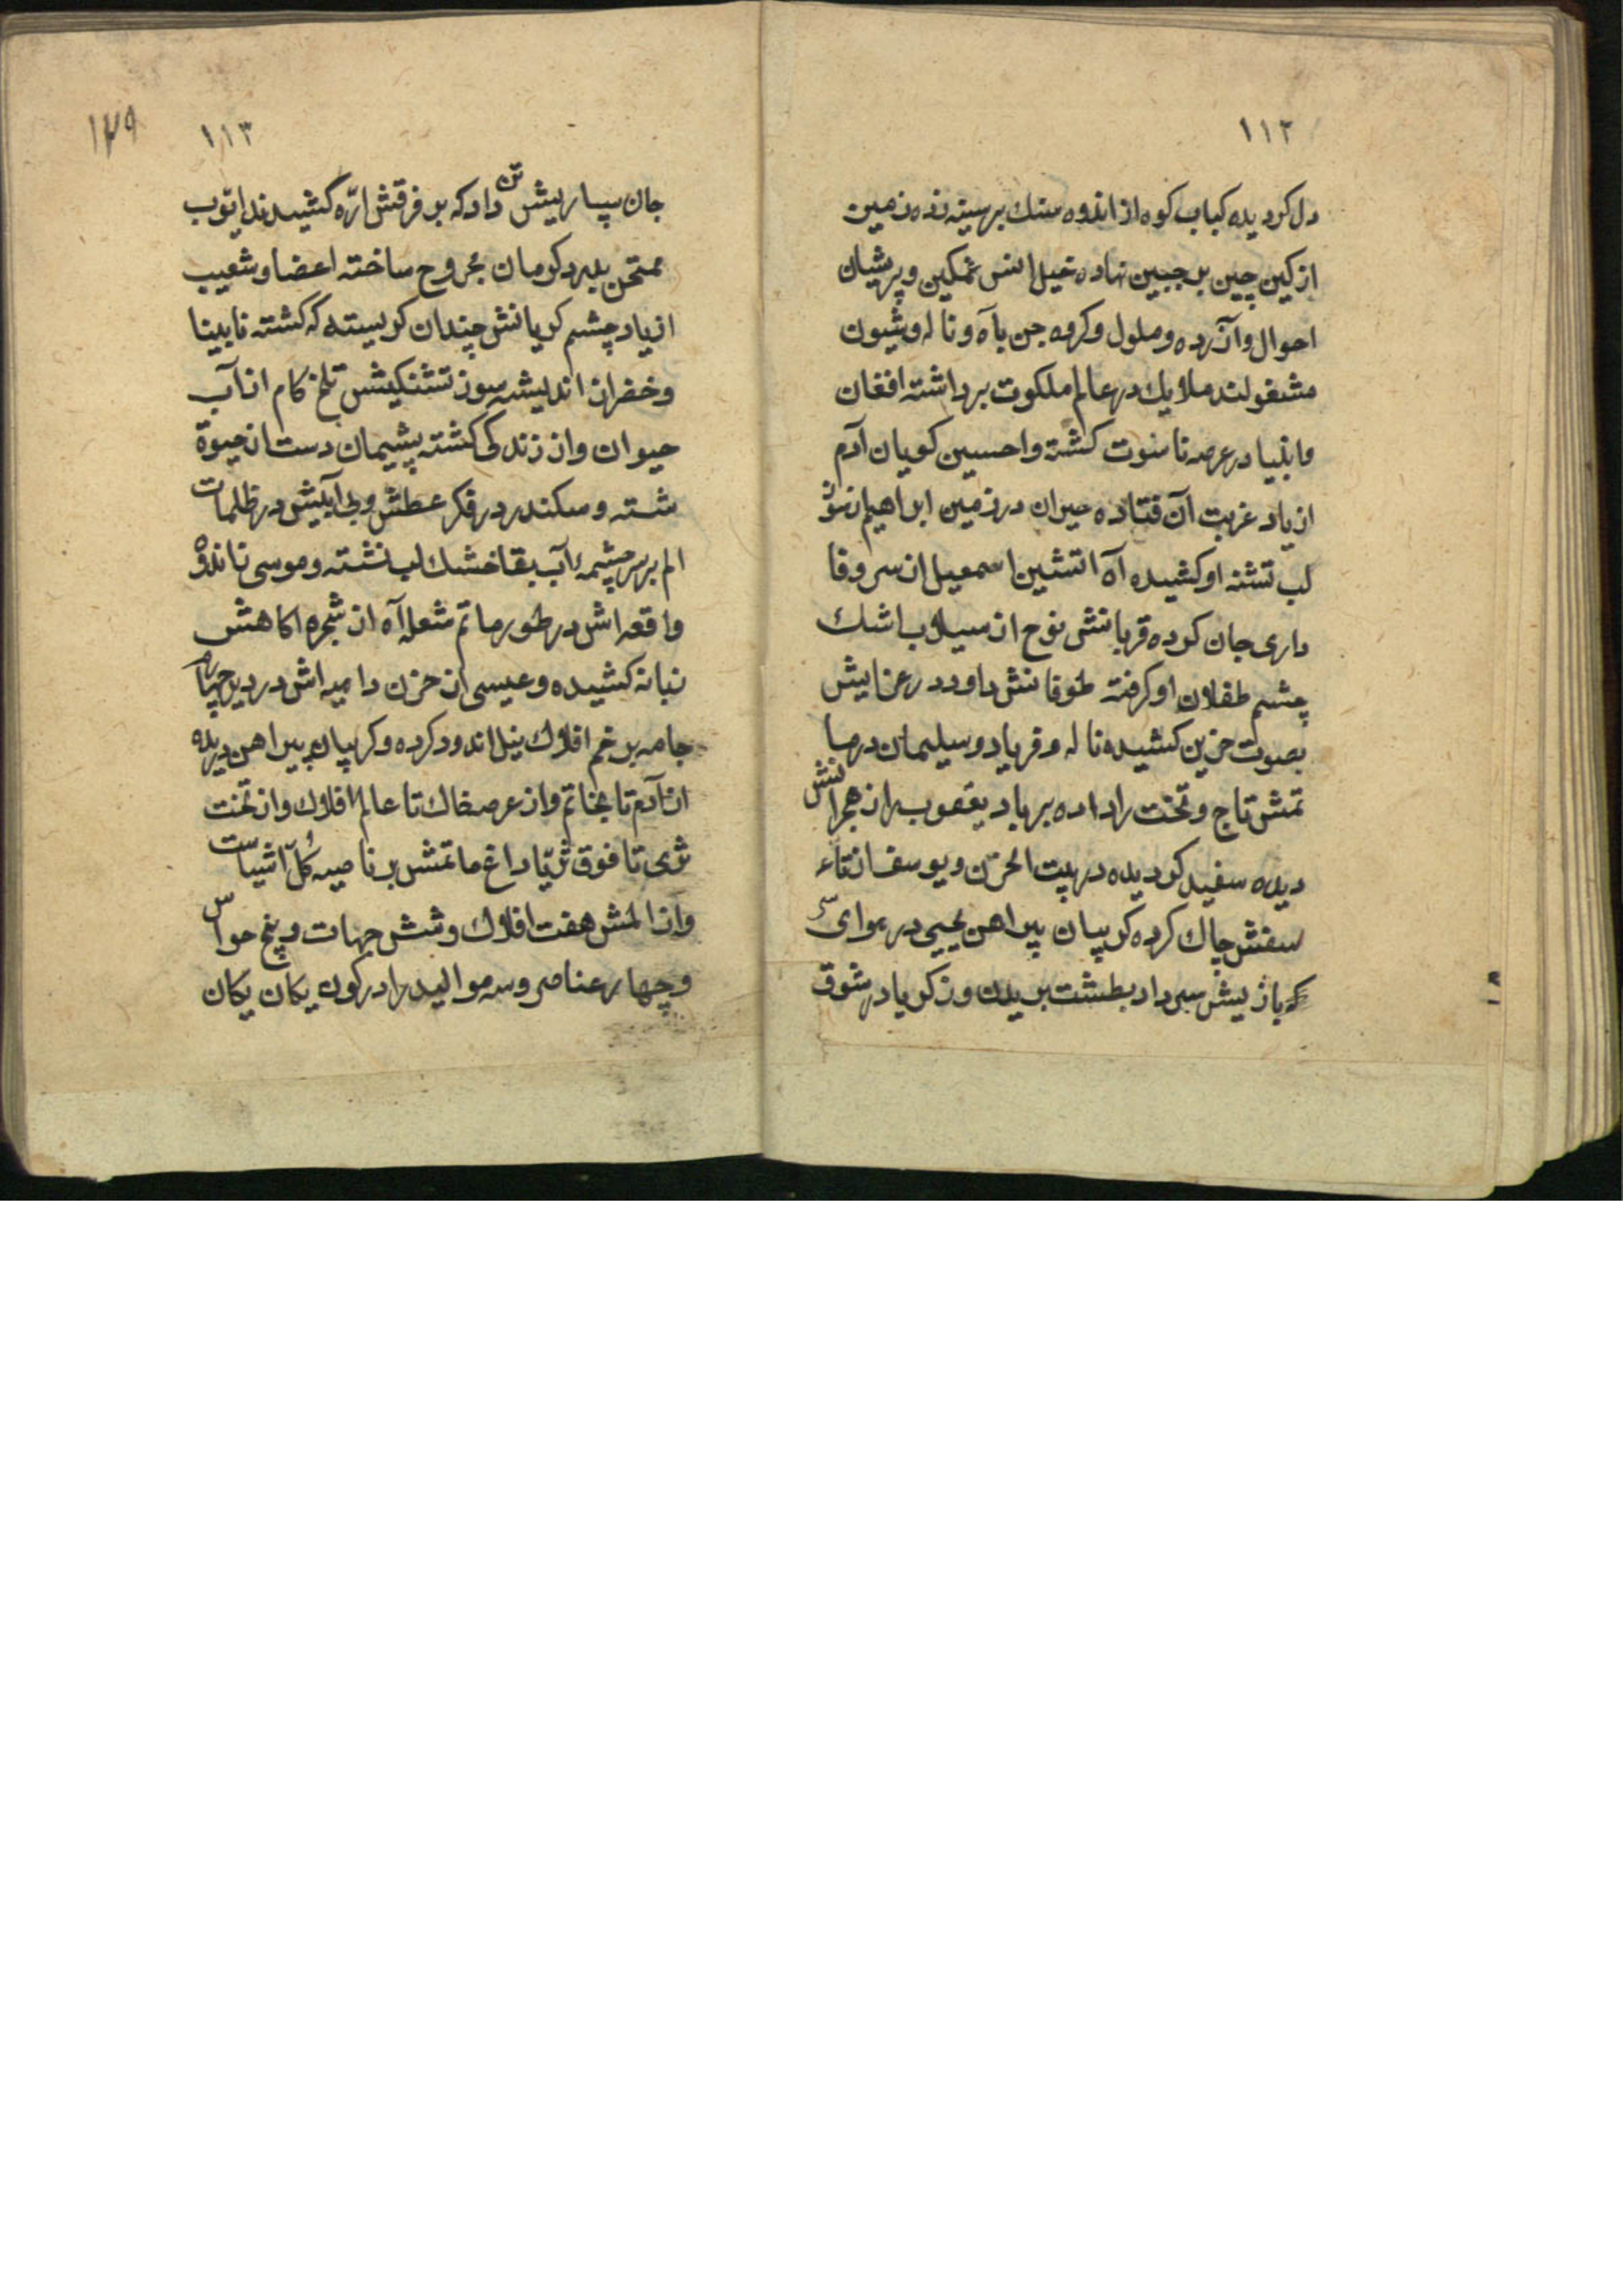 ۱۱۲
دل کردیده کباب کوه از اندوه سنك بر سینه زده زمین
از کین چین بر جبین نهاده خیل انس غمکین و پریشان
احوال و آزرده و ملول و کروه جن بآه و ناله و شیون
مشغولند ملایك در عالم ملکوت برداشته افغان
وانبیا در عرصه ناسوت کشته واحسین کویان آدم
از یاد غربت آن فتاده حیران در زمین ابراهیم از سوز
لب تشنه او کشیده آه اتشین اسمعیل از سر وفا
داری جان کرده قربانش نوح از سیلاب اشك
چشم طفلان او کرفته طوفانش داود در عزایش
بصوت حزین کشیده ناله و فریاد و سلیمان در ما
تمش تاج و تخت را داده بر باد یعقوب از هجرانش
دیده سفید کردیده در بیت الحزن و یوسف از تاء
سفش چاك کرده کریبان پیراهن یحیی در هوای
که بازیش سر داد بطشت بریدن و زکریا در شوق
۱۱۳
جان سپاریش تن داد که بر فرقش ارّه کشیدند ایوب
ممتحن بدرد کرمان مجروح ساخته اعضا و شعیب
از یاد چشم کریانش چندان کریسته که کشته نابینا
و خضر از اندیشه سوز تشنکیش تلخ کام از آب
حیوان و از زندکی کشته پشیمان دست از حیوة
شسته و سکندر در فکر عطش و بی آبیش در ظلمات
الم بر سر چشمهٔ آب بقا خشك لب نشته و موسی از اندوه
واقعه اش در طور ماتم شعله آه از شجره اکاهش
زبانه کشیده و عیسی از حزن داهیه اش در دیر چهارم
جامه بر خم افلاك نیل اندود کرده و کریبان پیراهن دریده
از آدم تا بخاتم و از عرصه خاك تا عالم افلاك و از تحت
ثری تا فوق ثریّا داغ ماتمش بر ناصیه کُل آشیاست
و از المش هفت افلاك و شش جهات و پنج حواس
و چهار عناصر و سه موالید را در کون یکان یکان